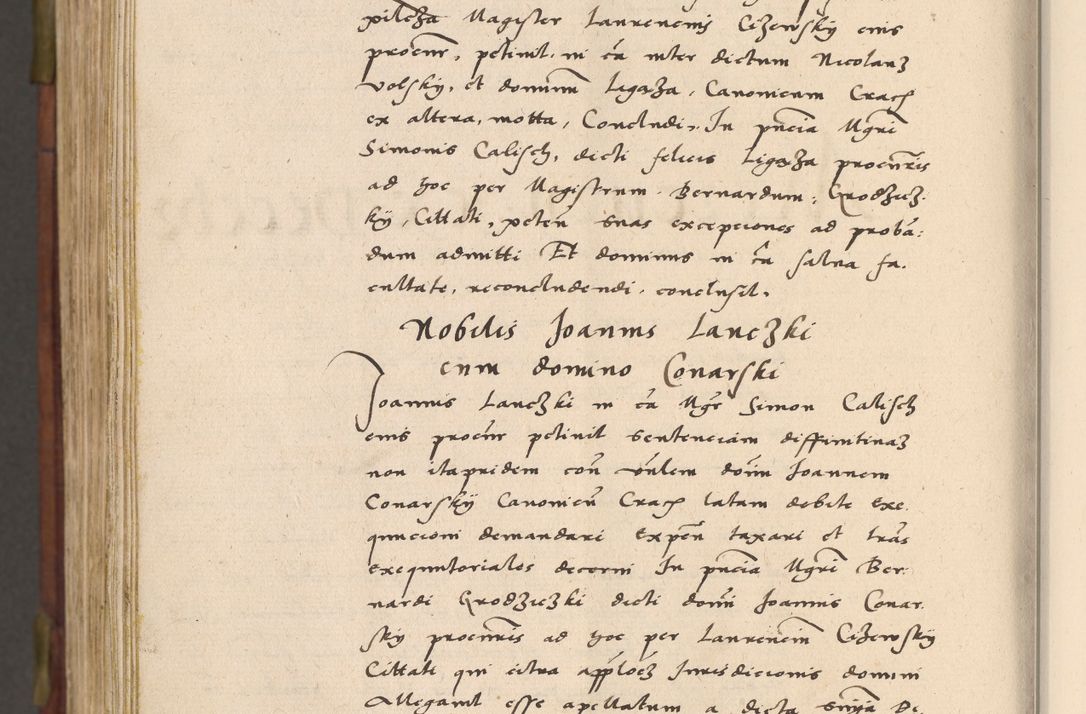 pilcza Magister Laurencius Cizewsky eius
procur, petivit in cã inter dictum Nicolaũ
volsky, et dominũ Ligaza, Canonicum Crac
ex altera, motta, Concludi, In pñcia Mgri
Simonis Calisch, dicti felicis Ligaza procuris
ad hoc per Magistrum Bernardum Grodzicz
ky, Cittati, peteñ suas excepciones ad probã:
dum admitti Et dominus in cã salva fa.
cultate, reconcludendi, conclusit,
Nobilis Joannis Lanczki
cum domino Conarski
Joannis Lanczki in cã Mgr Simon Calisch
eius procur petivit sentenciam diffinitivã
non itapridem coñ vñlem doñm Joannem
Conarsky Canonicũ Crac latam debite exe.
qucioni demandari Expeñ taxari et lr̃as
exequutoriales decerni In pñcia Mgri Ber:
nardi Grodziczki dicti domi Joannis Conar.
sky procuris ad hoc per Laurencium Cizewsky
Cittati qui citra appl̃oẽ Jurisdicionis domini
Allegavit esse apellatum a dicta sniã De